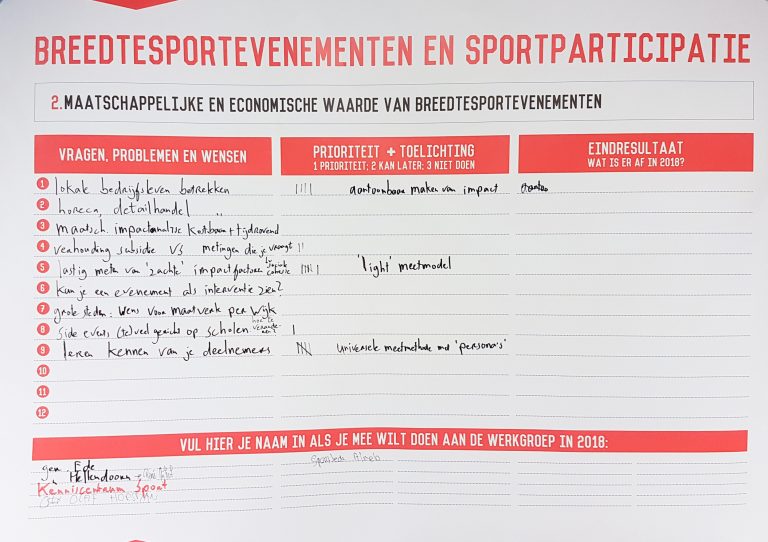 BREEDTESPORTEVENEMENTEN EN SPORTPARTICIPATIE
2. MAATSCHAPPELIJKE EN ECONOMISCHE WAARDE VAN BREEDTESPORTEVENEMENTEN
VRAGEN, PROBLEMEN EN WENSEN
PRIORITEIT + TOELICHTING
1 PRIORITEIT; 2 KAN LATER; 3 NIET DOEN
EINDRESULTAAT
WAT IS ER AF IN 2018?
1 lokale bedrijfsleven betrekken |||| aantoonbaar maken van impact
2 horeca, detailhandel ,,
3 maatsch. impactanalyse kostbaar + tijdrovend
4 verhouding subsidie VS metingen die je vraagt ||
5 lastig meten van 'zachte' impactfactoren bv sociale cohesie 'light' meetmodel
6 Kun je een evenement als interventie zien?
7 grote steden: wens voor maatwerk per wijk
8 side events (te) veel gericht op scholen. hoe te veranderen? |
9 leren kennen van je deelnemers universele meetmethode met 'persona's'
10
11
12
VUL HIER JE NAAM IN ALS JE MEE WILT DOEN AAN DE WERKGROEP IN 2018:
gem. Ede
" Hellendoorn
Kenniscentrum Sport